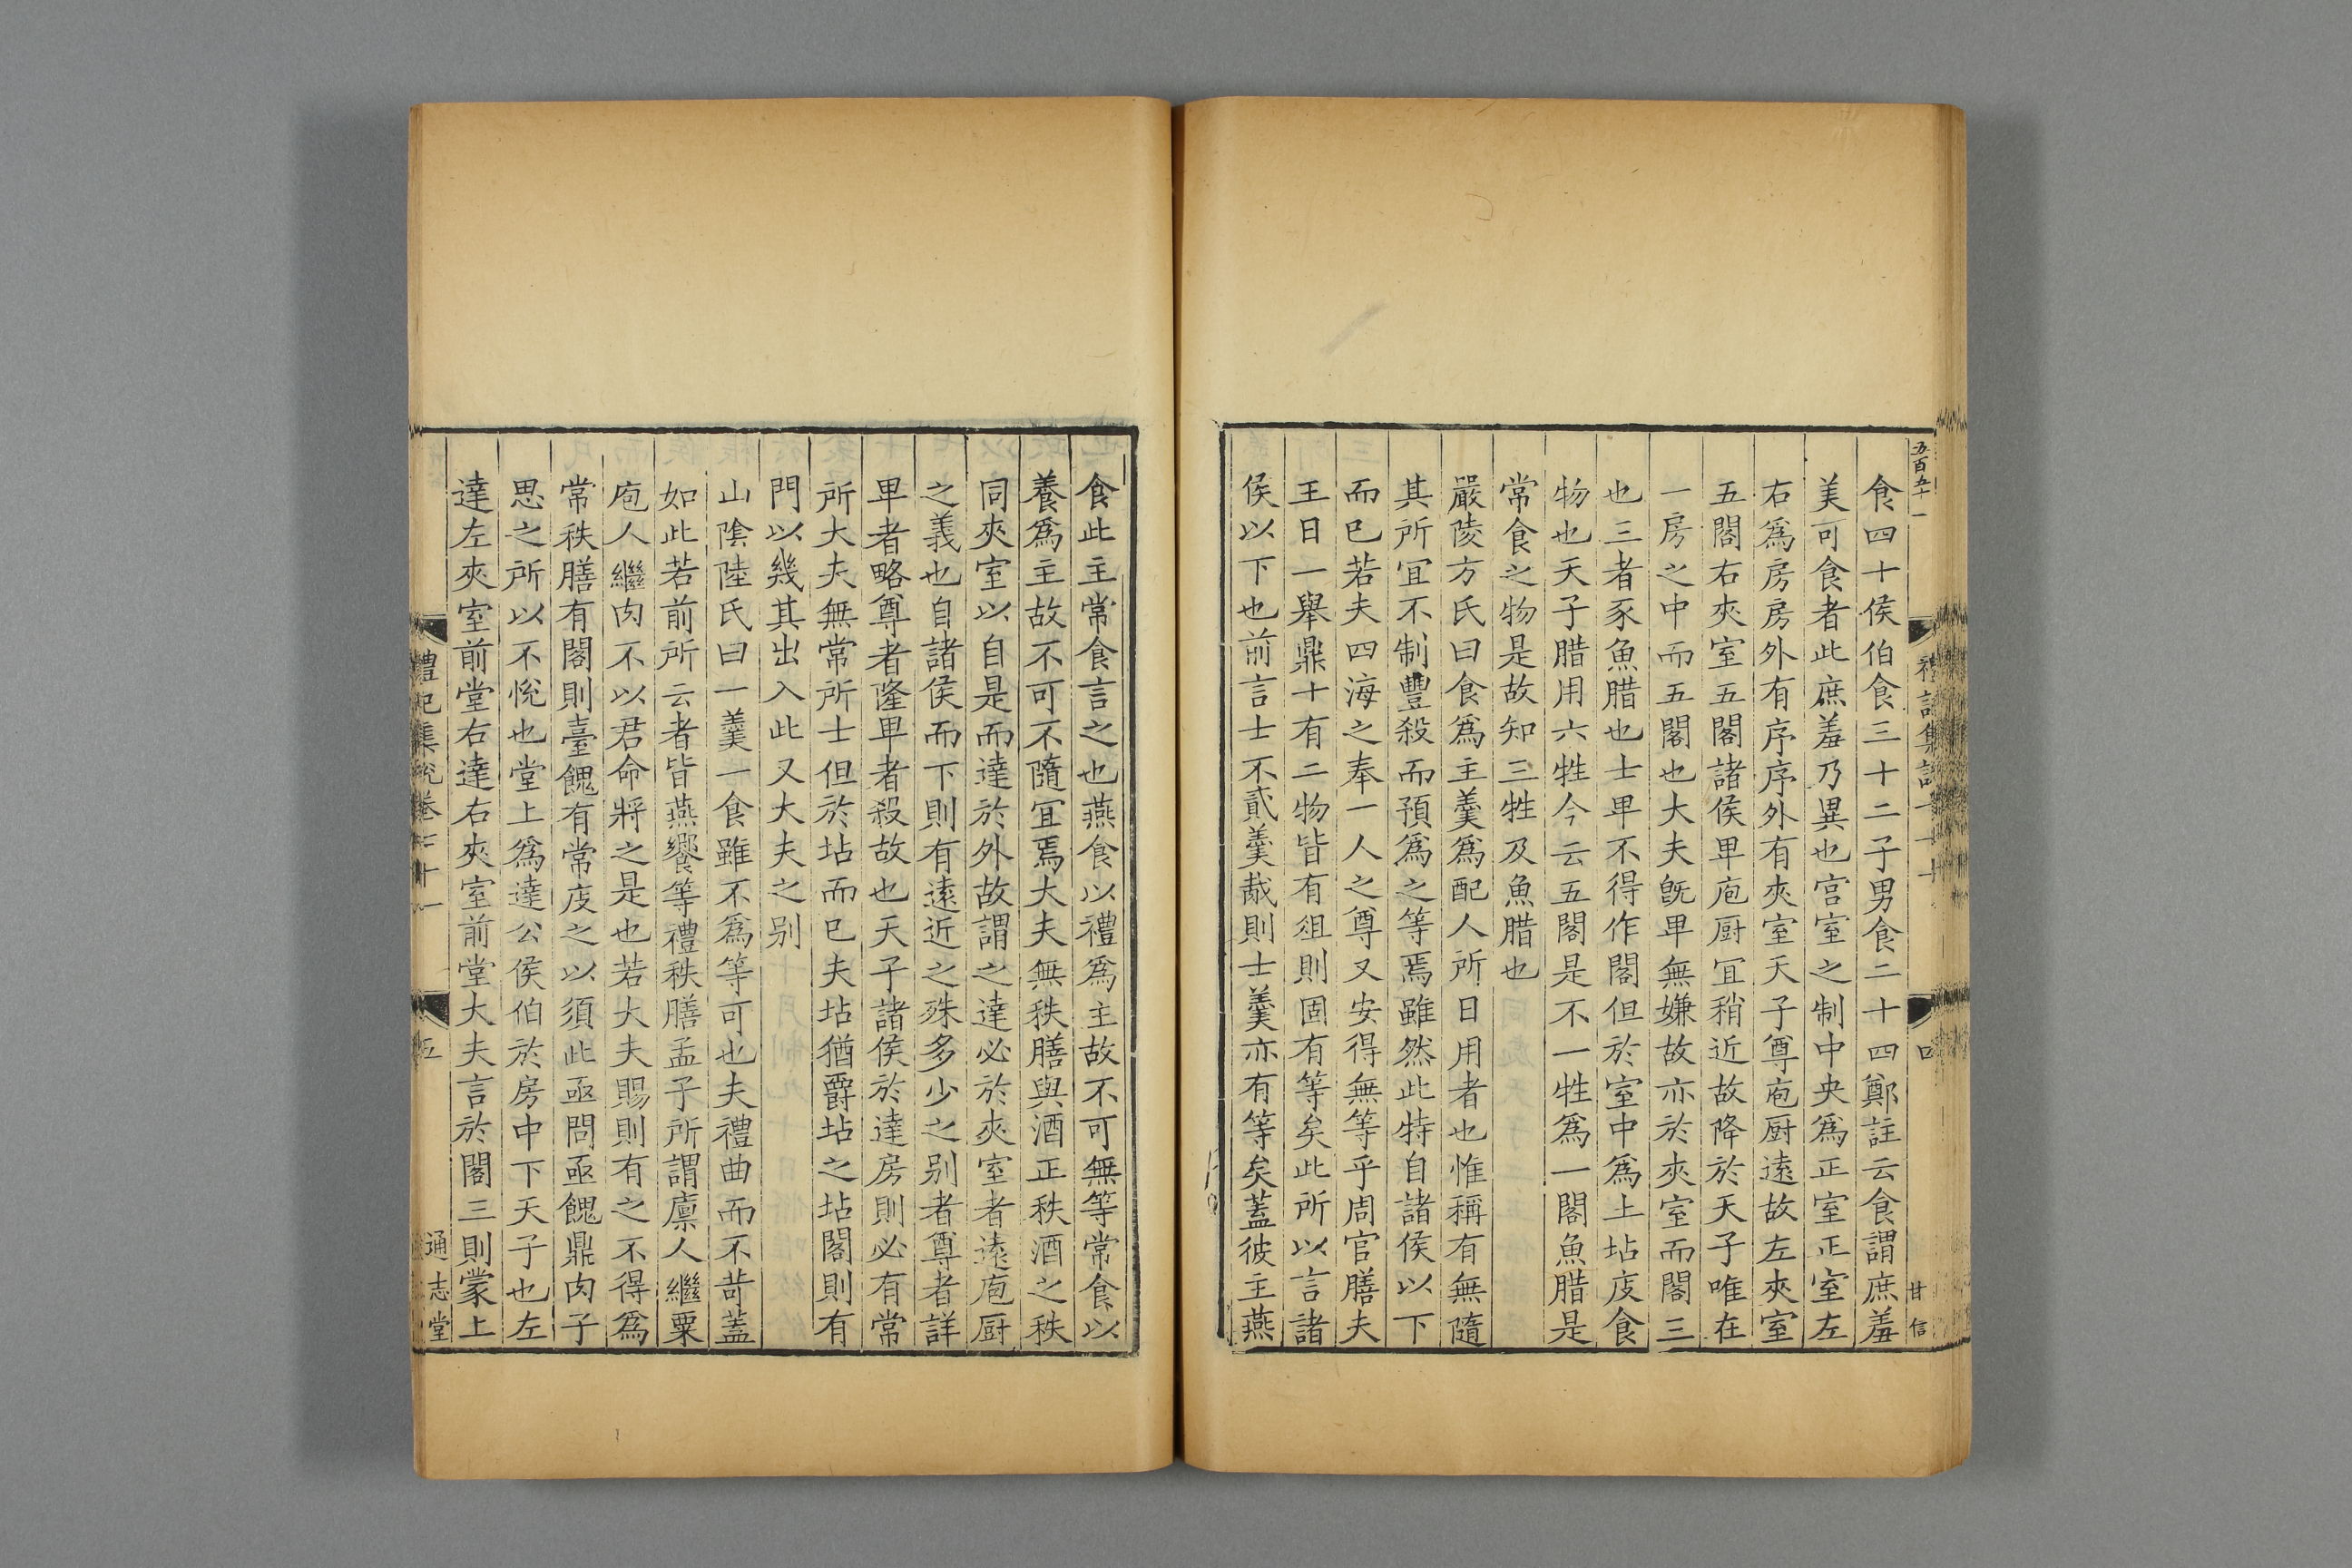 五百五十一
食四十侯伯食三十二子男食二十四鄭註云食謂庶羞
美可食者此庶羞乃異也宫室之制中央爲正室正室左
右爲房房外有序序外有夾室天子尊庖厨遠故左夾室
五閣右夾室五閣諸侯卑庖厨冝稍近故降於天子唯在
一房之中而五閣也大夫旣卑無嫌故亦於夾室而閣三
也三者豕魚腊也士卑不得作閣但於室中爲土坫庋食
物也天子腊用六牲今云五閣是不一牲爲一閣魚腊是
常食之物是故知三牲及魚腊也
嚴陵方氏曰食爲主羹爲配人所日用者也惟稱有無隨
其所冝不制豐殺而預爲之等焉雖然此特自諸侯以下
而巳若夫四海之奉一人之尊又安得無等乎周官膳夫
王日一舉鼎十有二物皆有俎則固有等矣此所以言諸
侯以下也前言士不貳羹胾則士羹亦有等矣蓋彼主燕
四
甘
信
食此主常食言之也燕食以禮爲主故不可無等常食以
養爲主故不可不隨冝焉大夫無秩膳與酒正秩酒之秩
同夾室以自是而達於外故謂之達必於夾室者遠庖厨
之義也自諸侯而下則有遠近之殊多少之别者尊者詳
卑者略尊者隆卑者殺故也天子諸侯於達房則必有常
所大夫無常所士但於坫而巳夫坫猶爵坫之坫閣則有
門以幾其出入此又大夫之别
山隂陸氏曰一羹一食雖不爲等可也夫禮曲而不苛蓋
如此若前所云者皆燕饗等禮秩膳孟子所謂廩人繼粟
庖人繼肉不以君命將之是也若大夫賜則有之不得爲
常秩膳有閣則臺餽有常庋之以須此亟問亟餽鼎肉子
思之所以不悅也堂上爲達公侯伯於房中下天子也左
達左夾室前堂右達右夾室前堂大夫言於閣三則蒙上
禮記集說卷七十一
五
通志堂